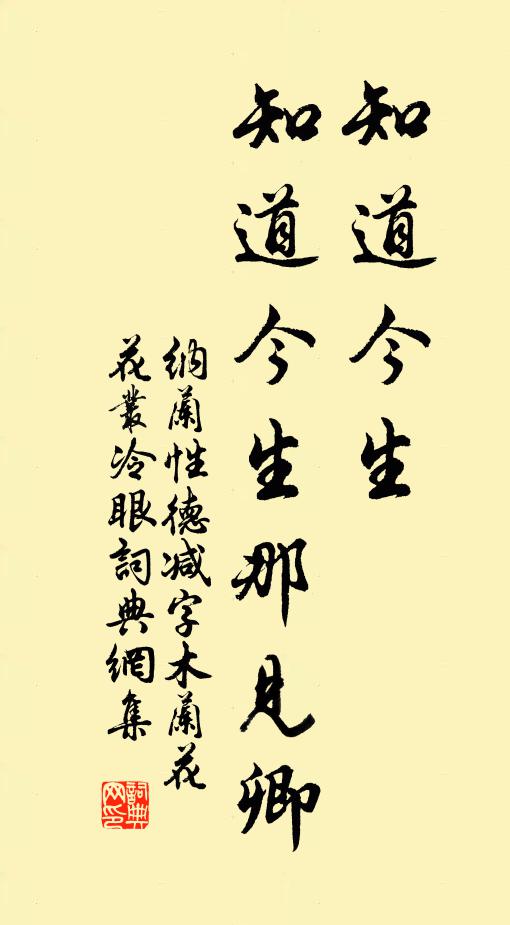 知道今生
知道今生那見卿
納蘭性德減字木蘭花
花叢冷眼詞典網集
詞典
网印